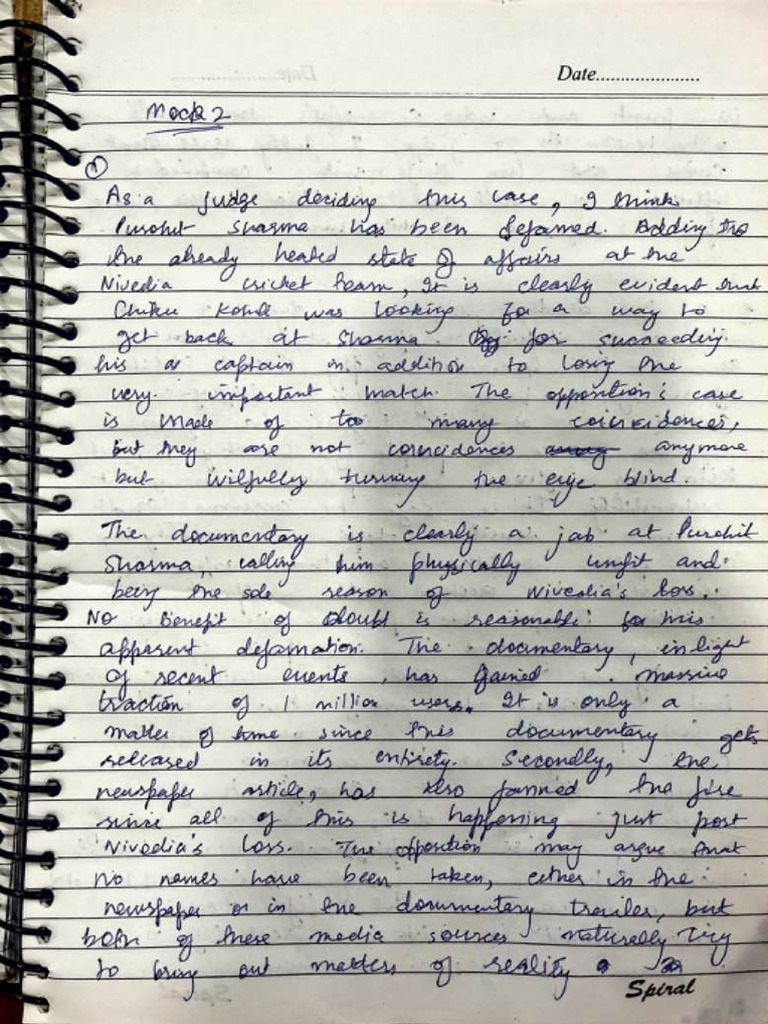 Date.....................
Mock 2
1
As a judge deciding this case, I think
Purohit Sharma has been defamed. Adding to
the already heated state of affairs at the
Nivedia cricket team, It is clearly evident that
Chiku Kohli was looking for a way to
get back at Sharma for succeeding
his as captain in addition to losing the
very important match. The opposition's case
is made of too many coincidences,
but they are not coincidences anymore
but wilfully turning the eye blind.
The documentary is clearly a jab at Purohit
Sharma, calling him physically unfit and
being the sole reason of Nivedia's loss.
No benefit of doubt is reasonable for this
apparent defamation. The documentary, in light
of recent events, has gained massive
traction of 1 million users. It is only a
matter of time since this documentary gets
released in its entirety. Secondly, the
newspaper article, has also fanned the fire
since all of this is happening just post
Nivedia's loss. The opposition may argue that
no names have been taken, either in the
newspaper or in the documentary trailer, but
both of these media sources naturally try
to bring out matters of reality
Spiral